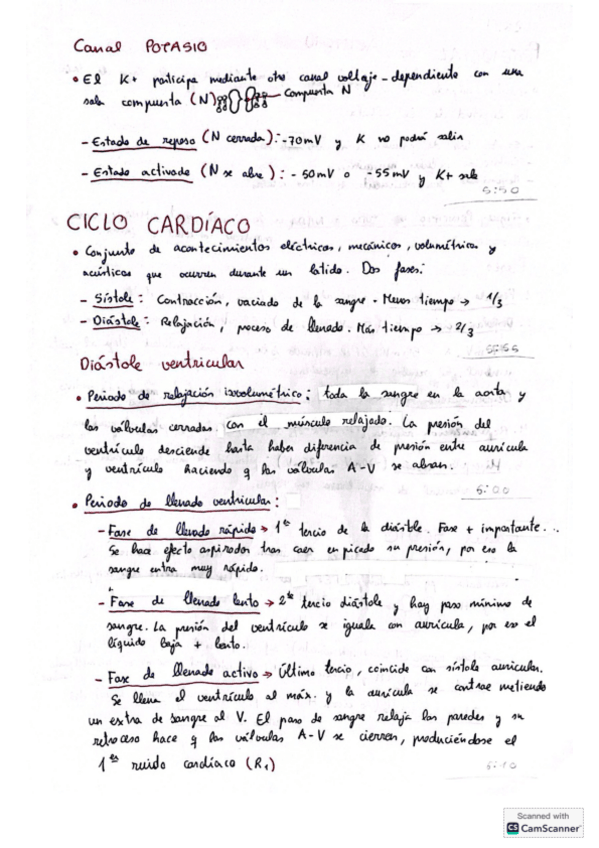 Canal POTASIO
• El K+ participa mediante otro canal voltaje-dependiente con una
sola compuerta (N) Compuerta N
- Estado de reposo (N cerrada): -70mV y K no podrá salir
- Estado activado (N se abre): -50mV o -55mV y K+ sale
5:50
CICLO CARDÍACO
• Conjunto de acontecimientos eléctricos, mecánicos, volumétricos y
acústicos que ocurren durante un latido. Dos fases:
- Sístole: Contracción, vaciado de la sangre - Menos tiempo → 1/3
- Diástole: Relajación, proceso de llenado. Más tiempo → 2/3
Diástole ventricular
• Periodo de relajación isovolumétrico: toda la sangre en la aorta y
las válvulas cerradas con el músculo relajado. La presión del
ventrículo desciende hasta haber diferencia de presión entre aurícula
y ventrículo haciendo q las válvulas A-V se abran.
6:00
• Periodo de llenado ventricular:
- Fase de llenado rápido → 1er tercio de la diástole. Fase + importante...
Se hace efecto aspirador tras caer en picado su presión, por eso la
sangre entra muy rápido.
- Fase de llenado lento → 2do tercio diástole y hay paso mínimo de
sangre. La presión del ventrículo se iguala con aurícula, por eso el
líquido baja + lento.
- Fase de llenado activo → Último tercio, coincide con sístole auricular.
Se llena el ventrículo al máx. y la aurícula se contrae metiendo
un extra de sangre al V. El paso de sangre relaja las paredes y su
retroceso hace q las válvulas A-V se cierren, produciéndose el
1er ruido cardíaco (R1)
6:10
Scanned with
CS CamScanner